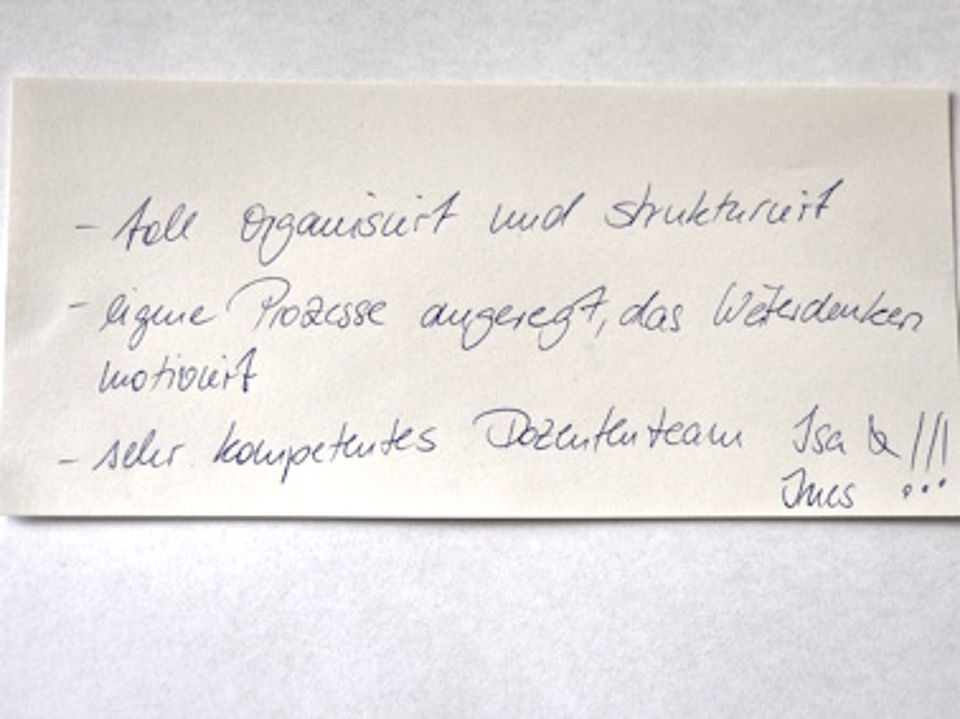 - toll organisiert und strukturiert
- eigene Prozesse angeregt, das Weiterdenken
motiviert
- sehr kompetentes Dozententeam Isa & !!!
Ines